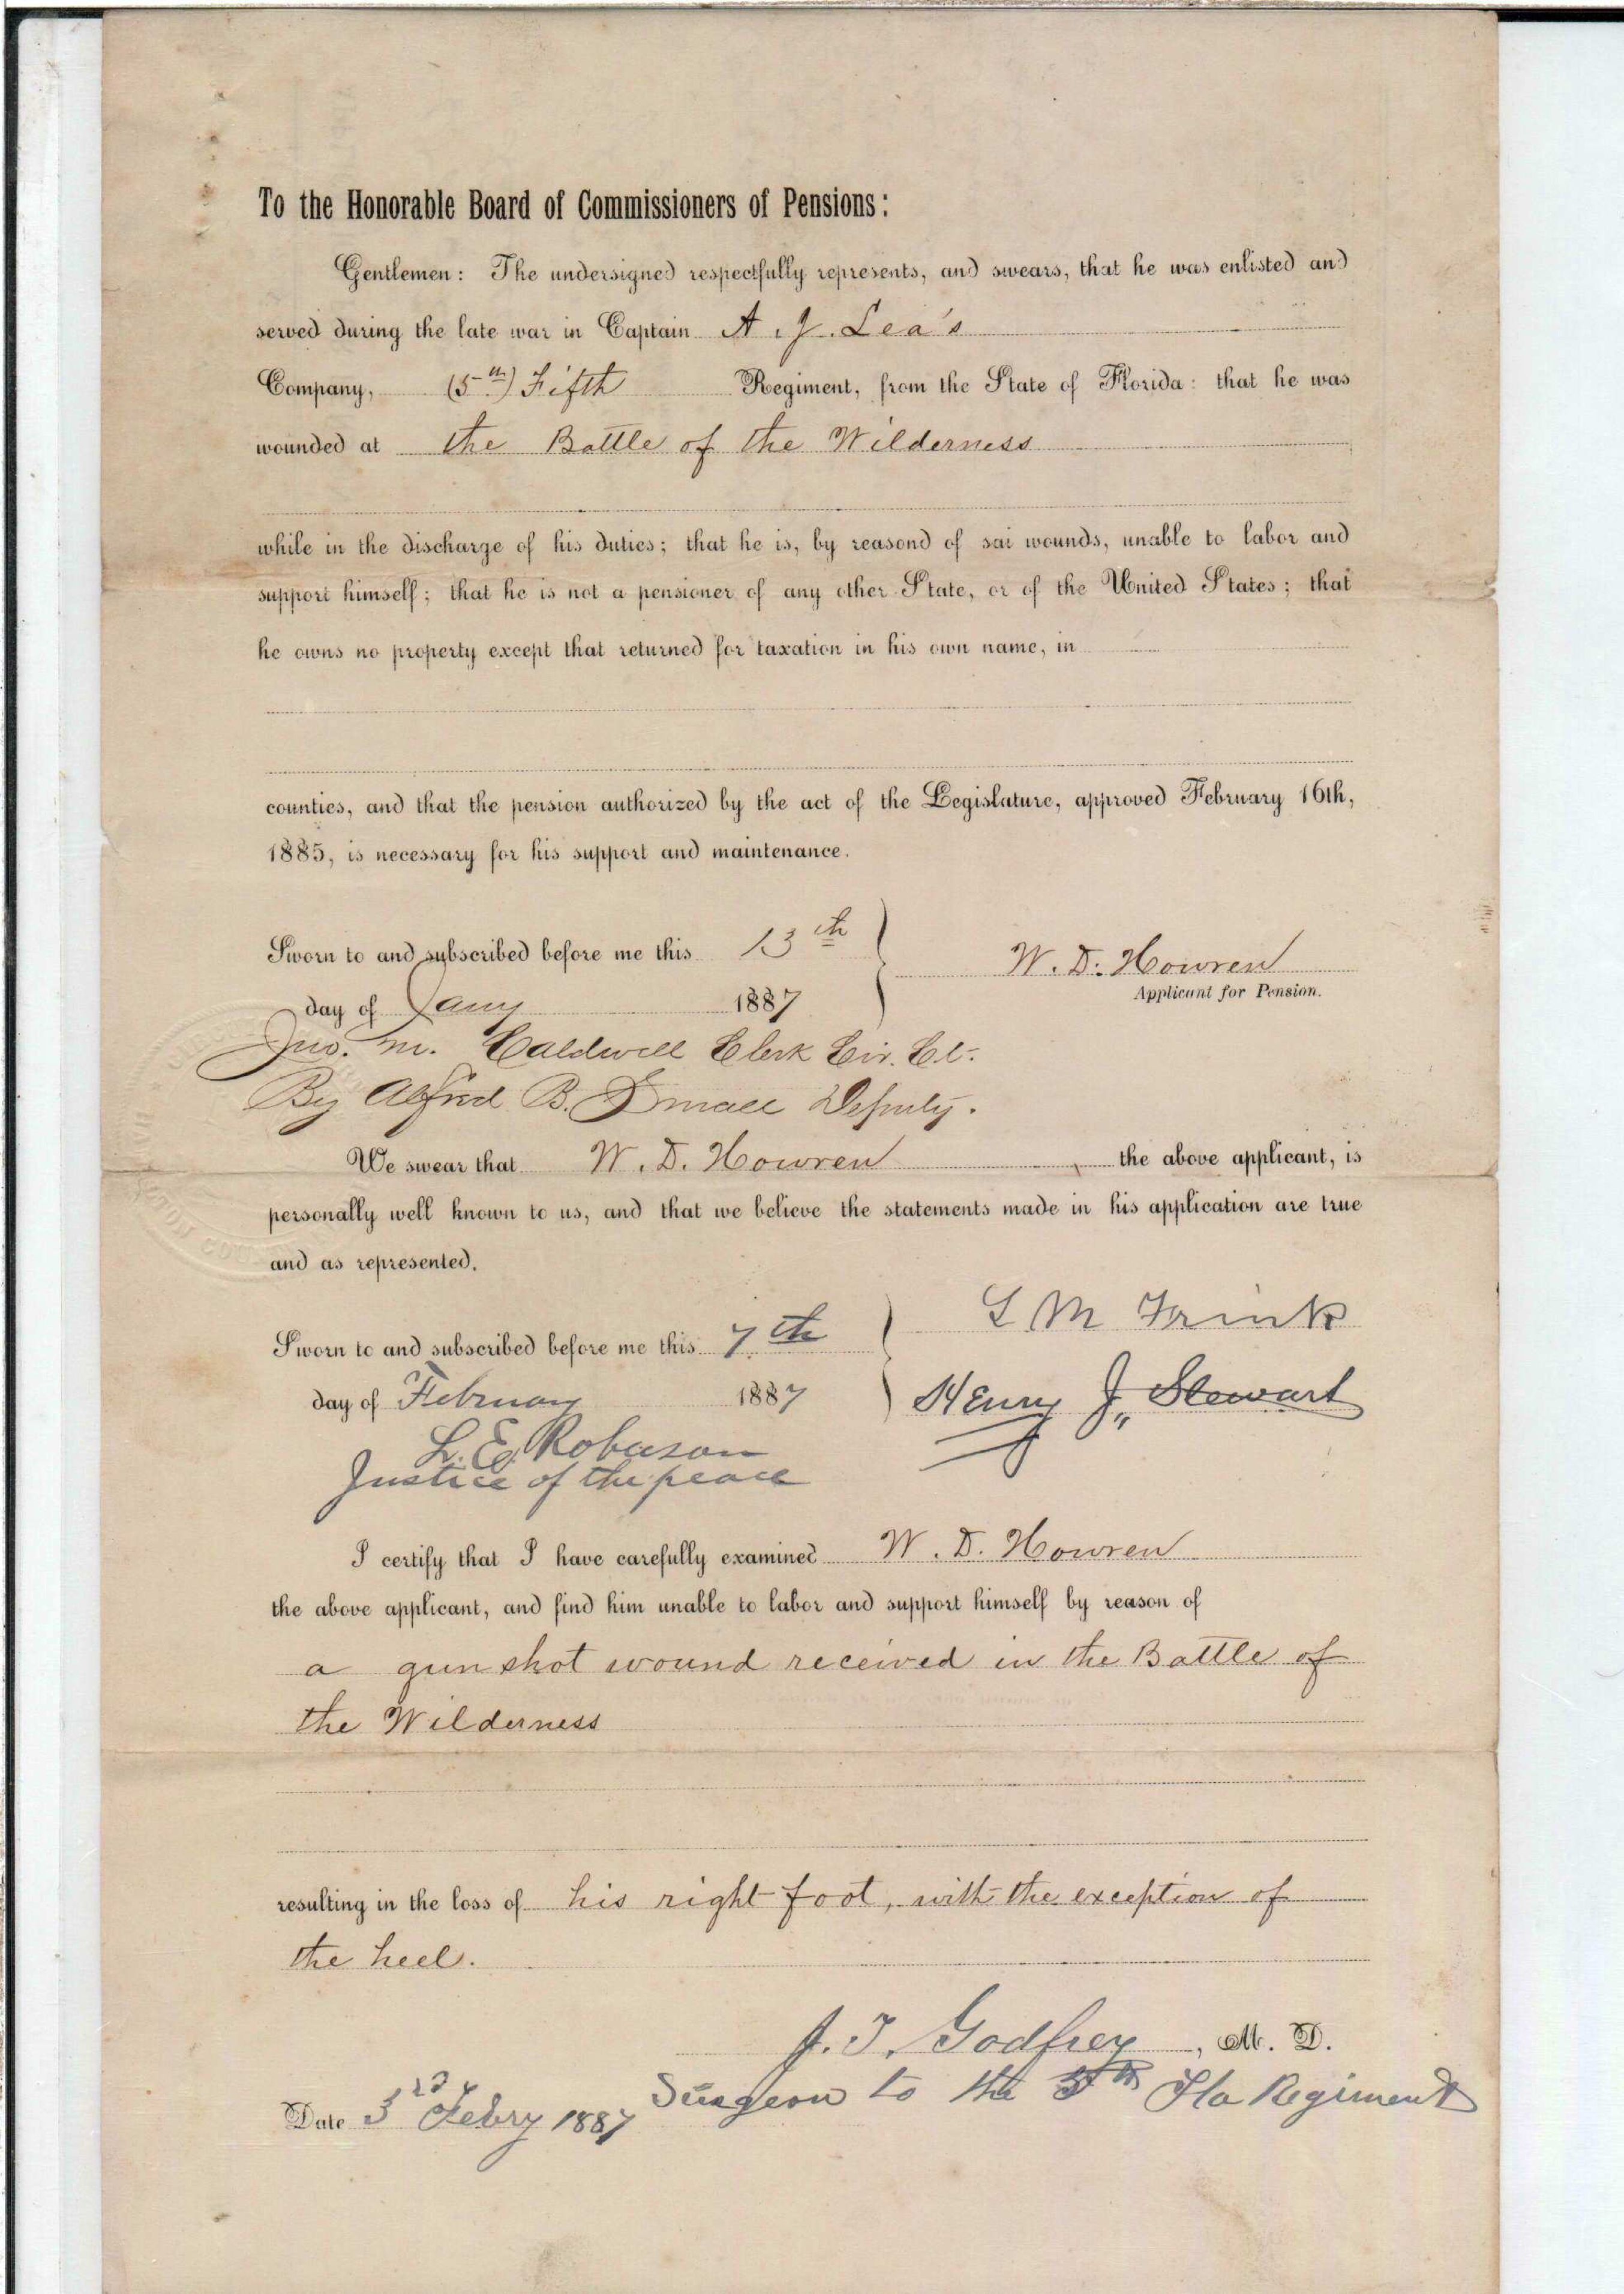 To the Honorable Board of Commissioners of Pensions:
Gentlemen: The undersigned respectfully represents, and swears, that he was enlisted and
served during the late war in Captain A. J. Lea's
Company, (5th) Fifth Regiment, from the State of Florida: that he was
wounded at the Battle of the Wilderness
while in the discharge of his duties; that he is, by reasond of sai wounds, unable to labor and
support himself; that he is not a pensioner of any other State, or of the United States; that
he owns no property except that returned for taxation in his own name, in
counties, and that the pension authorized by the act of the Legislature, approved February 16th,
1885, is necessary for his support and maintenance.
Sworn to and subscribed before me this 13th
W. D. Howren
Applicant for Pension.
day of Jany 1887
Jno. M. Caldwell Clerk Cir. Ct.
By Alfred B. Small Deputy.
We swear that W. D. Howren the above applicant, is
personally well known to us, and that we believe the statements made in his application are true
and as represented.
Sworn to and subscribed before me this 7th
L M Frink
day of February 1887
Henry J. Stewart
L. E. Robuson
Justice of the peace
I certify that I have carefully examined W. D. Howren
the above applicant, and find him unable to labor and support himself by reason of
a gun shot wound received in the Battle of
the Wilderness
resulting in the loss of his right foot, with the exception of
the heel.
J. T. Godfrey, M. D.
Surgeon to the 5th Fla Regiment
Date 3rd Febry 1887